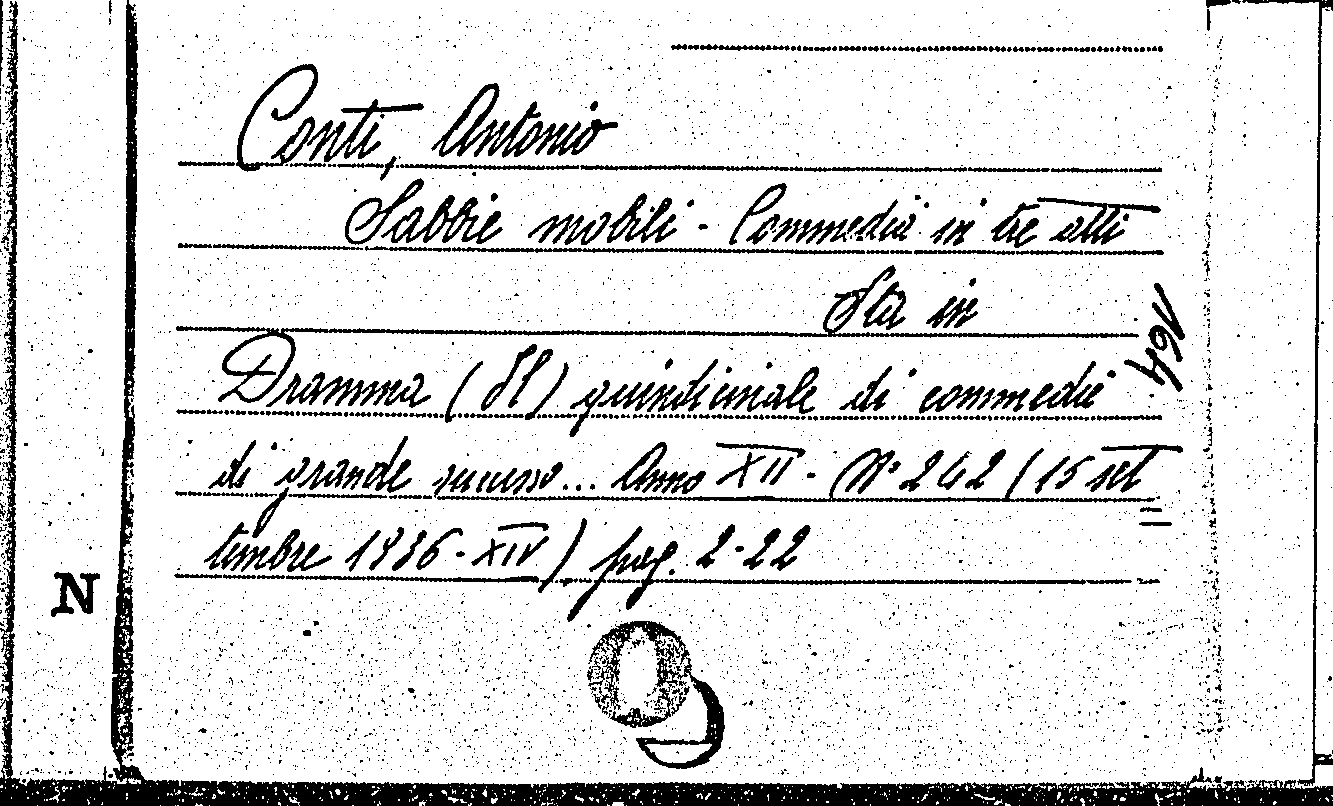 Conti, Antonio
Sabbie mobili - Commedia in tre atti
Sta in
164
Dramma (Il) quindicinale di commedie
di grande successo... Anno XII - N° 242 (15 set
tembre 1936 - XIV) pag. 2-22
N